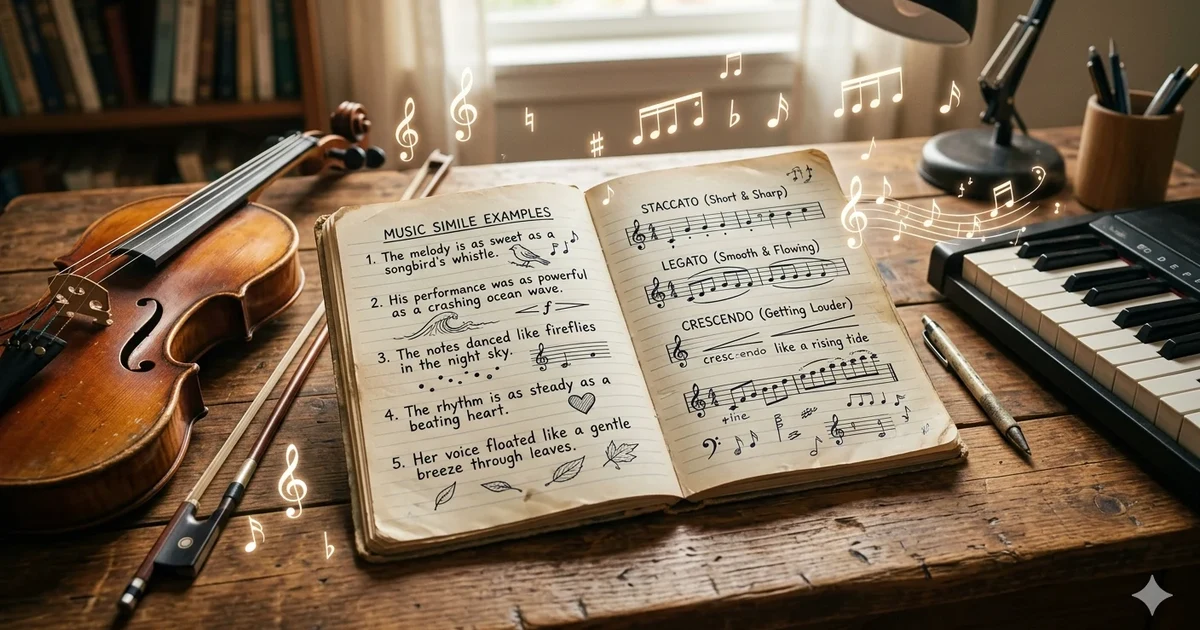 MUSIC SIMILE EXAMPLES
1. The melody is as sweet as a
songbird's whistle.
2. His performance was as powerful
as a crashing ocean wave.
f
3. The notes danced like fireflies
in the night sky.
4. The rhythm is as steady as a
beating heart.
5. Her voice floated like a gentle
breeze through leaves.
STACCATO (Short & Sharp)
LEGATO (Smooth & Flowing)
CRESCENDO (Getting Louder)
like a rising tide